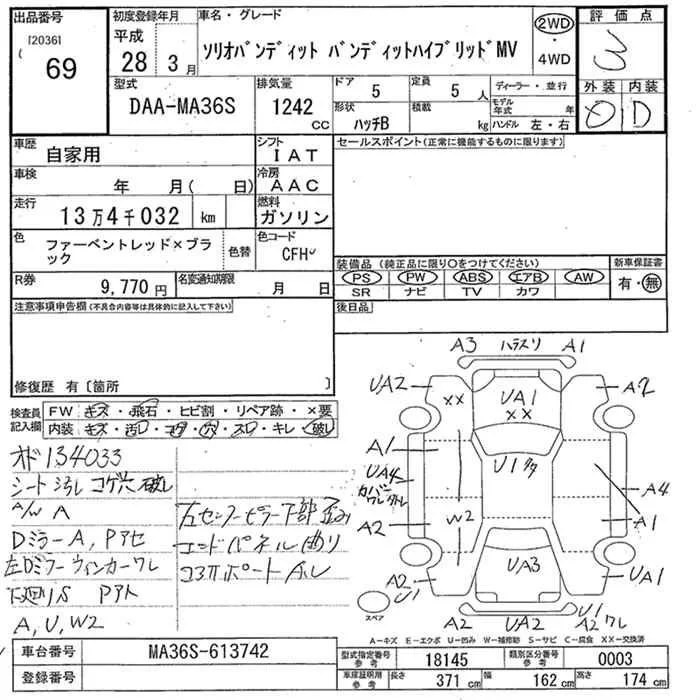 出品番号
[2036]
69
初度登録年月
平成
28 3月
車名・グレード
ソリオバンディット バンディットハイブリッドMV
2WD
・
4WD
評価点
3
外装 内装
D
型式
DAA-MA36S
排気量
1242
CC
ドア
5
定員
5 人
形状
ハッチB
積載
kg
ディーラー・並行
モデル年式 年
ハンドル 左・右
車歴
自家用
シフト
IAT
車検
年 月( 日)
冷房
AAC
走行
13万4千032 km
燃料
ガソリン
色
ファーベントレッド×ブラック
色替
色コード
CFH
R券
9,770 円
名変通知期限
月 日
セールスポイント(正常に機能するものに限ります)
装備品(純正品に限り○をつけてください)
PS PW ABS エアB AW
SR ナビ TV カワ
新車保証書
有・無
後日品
注意事項申告欄(不具合内容等は具体的に記入して下さい)
修復歴 有〔箇所 〕
検査員記入欄
FW キズ・飛石・ヒビ割・リペア跡・×要
内装 キズ・汚レ・コゲ・穴・スレ・キレ・破レ
オド134033
シート汚レ コゲ穴 破レ
A/W A
Dミラー A, Pアセ
左Dミラーウィンカーワレ
下廻りS Pアト
A, U, W2
左センターピラー下部歪み
エンドパネル曲り
コアサポート ズレ
A3 ハラスリ A1
UA2 XX UA1 XX A2
A1 U1
UA4
カバーワレ
A4
A2 W2 A1
UA3
A2 U1 UA1
スペア
A2 UA2 U1 A2ワレ
A―キズ E―エクボ U―凹み W―補修跡 S―サビ C―腐食 XX―交換済
車台番号
MA36S-613742
登録番号
型式指定番号 参考
18145
類別区分番号 参考
0003
車庫証明用 参考
長さ 371 cm
幅 162 cm
高さ 174 cm